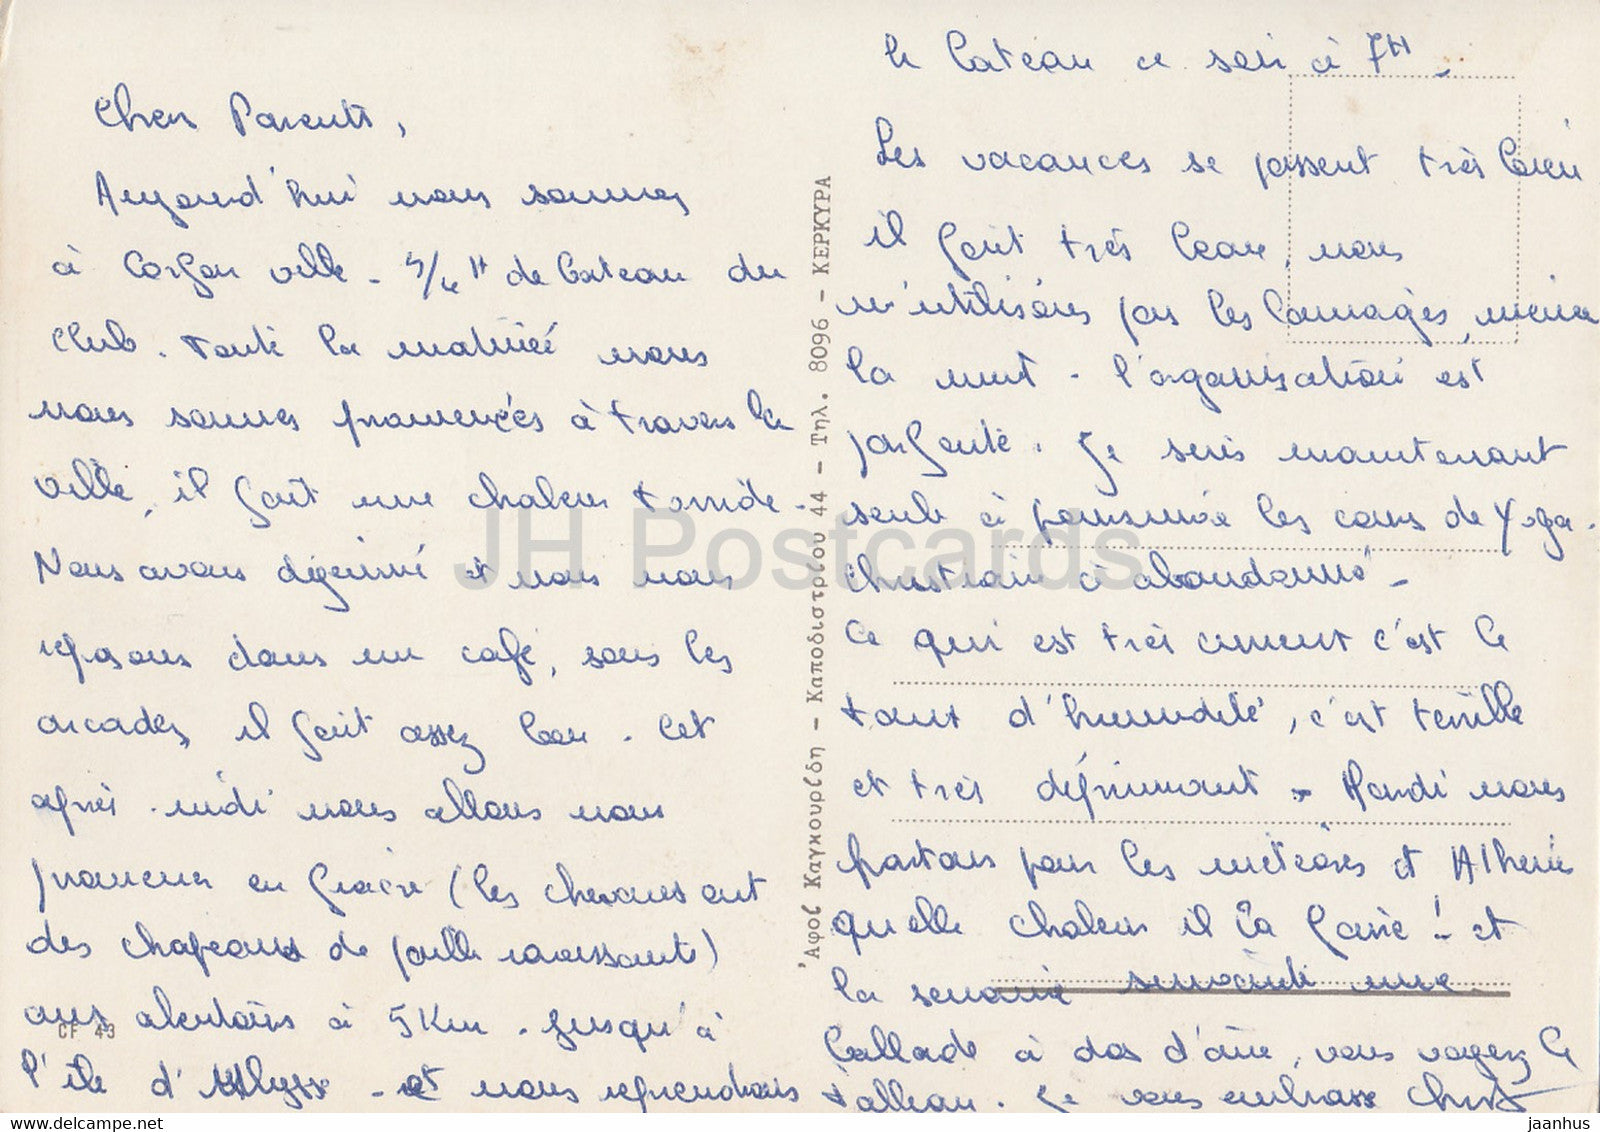 Chers Parents,
Aujourd'hui nous sommes
à Corfou ville - 3/4 H de bateau du
club. toute la matinée nous
nous sommes promenées à travers la
ville, il fait une chaleur torride.
Nous avons déjeuné et nous nous
reposons dans un café, sous les
arcades, il fait assez bon. Cet
après-midi nous allons nous
promener en fiacre (les chevaux ont
des chapeaux de paille ravissants)
aux alentours à 5 Km. jusqu'à
l'île d'Ulysse - et nous reprendrons
le bateau ce soir à 7H -
Les vacances se passent très bien
il fait très beau, nous
n'utilisons pas les lainages, même
la nuit - l'organisation est
parfaite. Je suis maintenant
seule à poursuivre les cours de Yoga.
a abandonné -
Ce qui est très c'est le
taux d'humidité, c'est terrible
et très déprimant - Mardi nous
partons pour les météores et Athènes
quelle chaleur il va faire! et
la semaine suivante une
ballade à dos d'âne, vous voyez le
tableau. Je vous embrasse
'Αφοί Καγκουρίδη - Καποδιστρίου 44 - Τηλ. 8096 - ΚΕΡΚΥΡΑ
CF 43
JH Postcards
delcampe.net
jaanhus